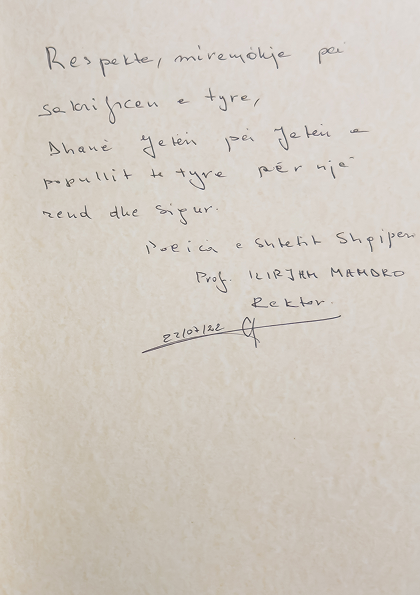 Respekte, mirenjohje për
sakrificen e tyre,
Dhanë Jetën për Jetën e
popullit te tyre për një
rend dhe sigur.
Policia e Shtetit Shqipëri
Prof. ILIRJAN MANDRO
Rektor.
22/07/22